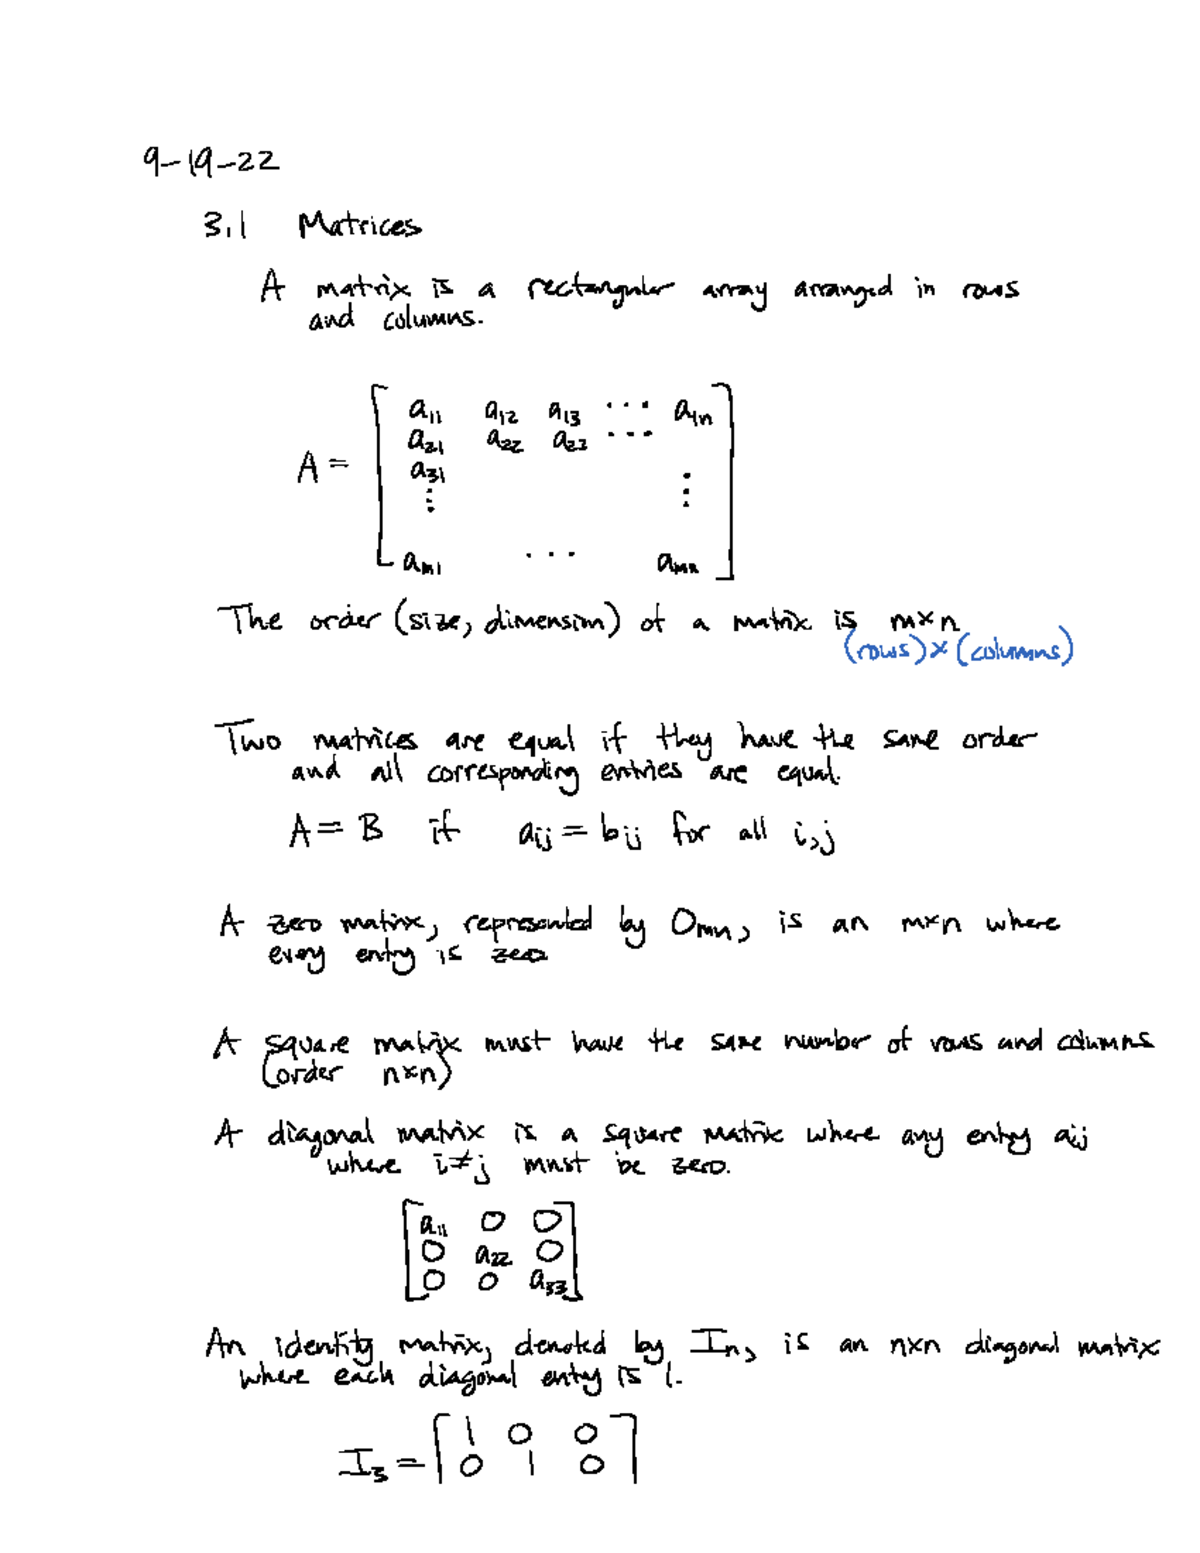 9-19-22
3.1 Matrices
A matrix is a rectangular array arranged in rows
and columns.
a₁₁ a₁₂ a₁₃ ... a₁ₙ
a₂₁ a₂₂ a₂₃ ...
A =
a₃₁
⋮ ⋮
aₘ₁ ... aₘₙ
The order (size, dimension) of a matrix is m×n
(rows)×(columns)
Two matrices are equal if they have the same order
and all corresponding entries are equal.
A = B if aij = bij for all i,j
A zero matrix, represented by Omn, is an m×n where
every entry is zero
A square matrix must have the same number of rows and columns
(order n×n)
A diagonal matrix is a square matrix where any entry aij
where i≠j must be zero.
[a₁₁ 0 0
0 a₂₂ 0
0 0 a₃₃]
An identity matrix, denoted by In, is an n×n diagonal matrix
where each diagonal entry is 1.
I₃ = [1 0 0
0 1 0]